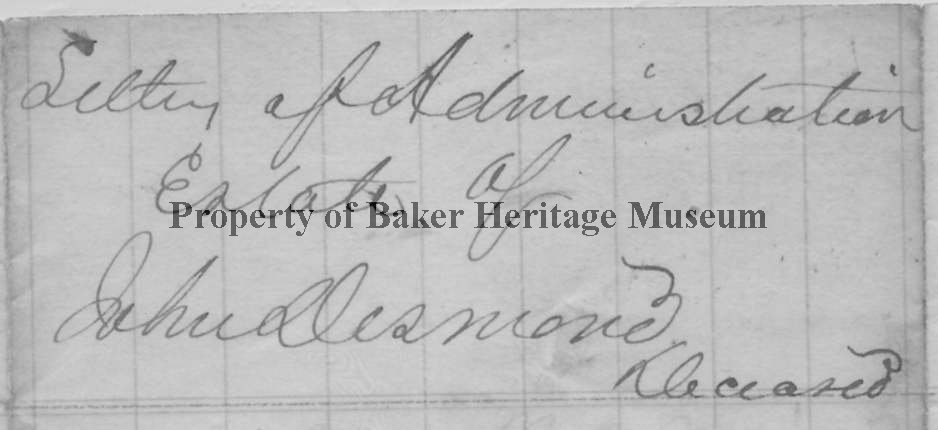 Letters of Administration
Estate of
Property of Baker Heritage Museum
John Desmond
Deceased